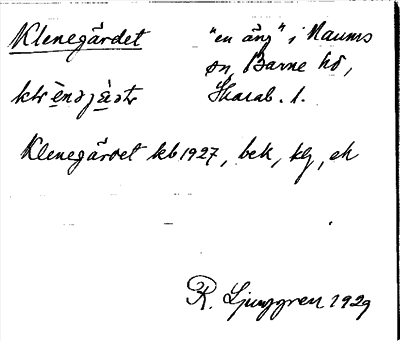 Klenegärdet "en äng" i Naums
sn, Barne hd,
Skarab. l.
Klenegärdet kb 1927, bek, kg, ek
R. Ljunggren 1929